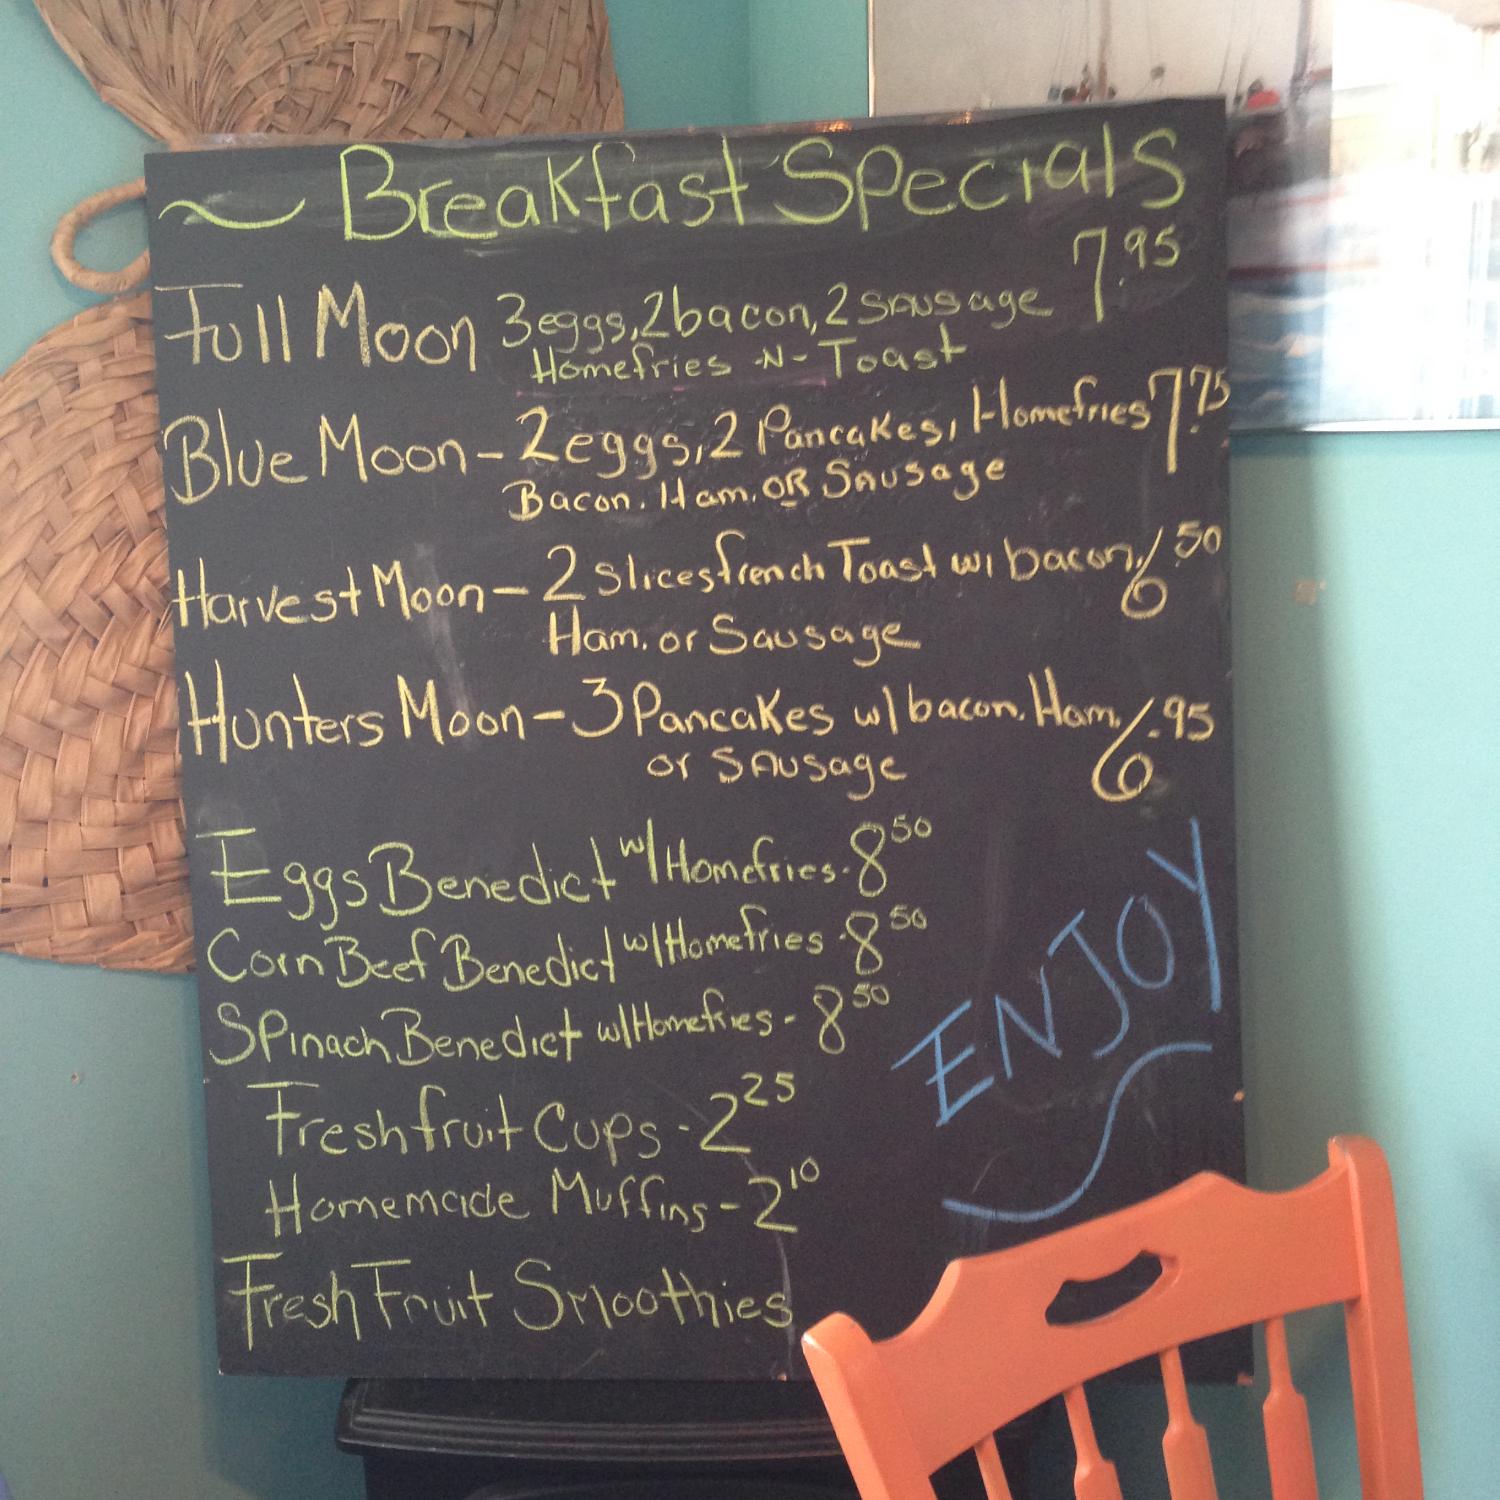 ~ Breakfast Specials
Full Moon 3 eggs, 2 bacon, 2 Sausage 7.95
Homefries -N- Toast
Blue Moon - 2 eggs, 2 Pancakes, Homefries 7.75
Bacon. Ham. OR Sausage
Harvest Moon - 2 slices french Toast w/ bacon, 6.50
Ham. or Sausage
Hunters Moon - 3 Pancakes w/ bacon. Ham, 6.95
or Sausage
Eggs Benedict w/ Homefries - 8 50
Corn Beef Benedict w/ Homefries - 8 50
Spinach Benedict w/ Homefries - 8 50
Fresh fruit Cups - 2 25
Homemade Muffins - 2 10
Fresh Fruit Smoothies
ENJOY